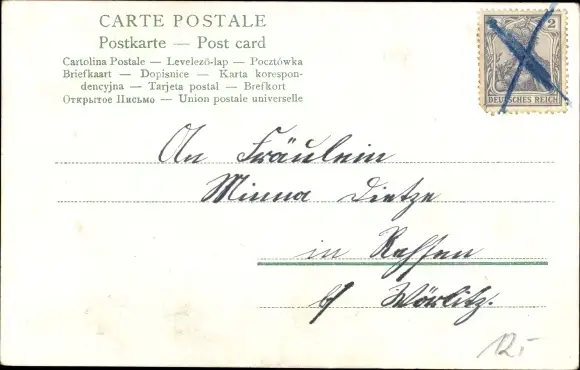 CARTE POSTALE
Postkarte — Post card
Cartolina Postale — Levelező-lap — Pocztówka
Briefkaart — Dopisnice — Karta korespon-
dencyjna — Tarjeta postal — Brefkort
Открытое Письмо — Union postale universelle
2
DEUTSCHES REICH
An Fräulein
Minna Dietze
in Rehsen
b/ Wörlitz.
12,-